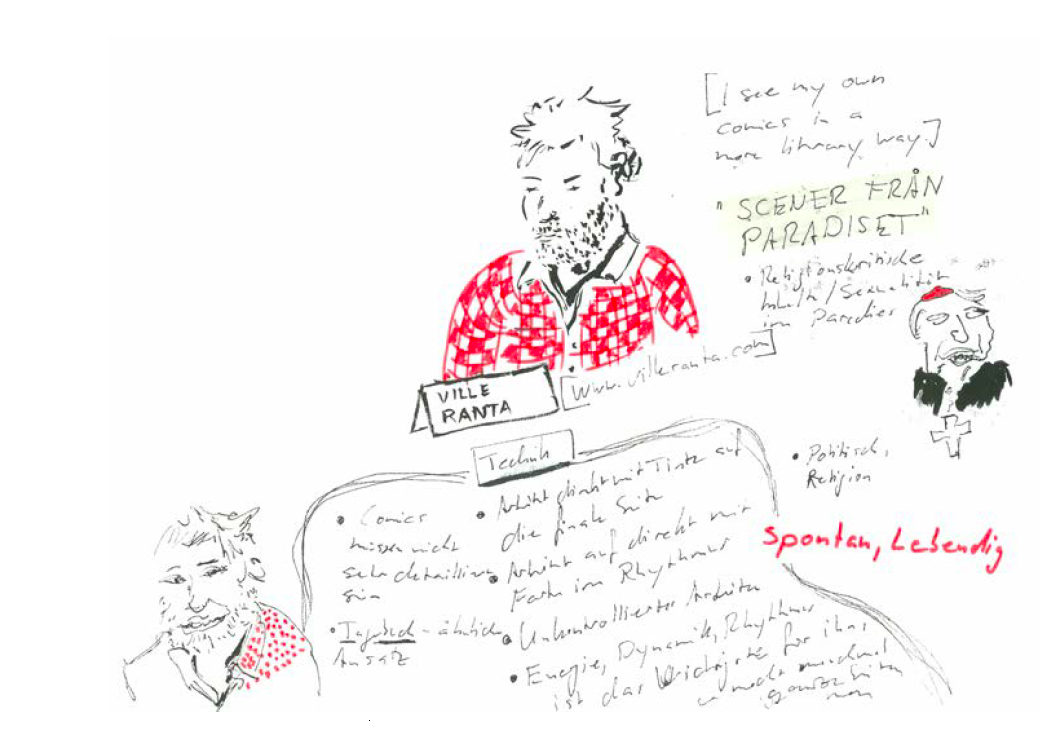 [I see my own
comics in a
more literary way.]
"SCENER FRÅN
PARADISET"
• Religionskritische
Inhalte/Sexualität
im Paradies
[www.villeranta.com]
VILLE
RANTA
• Politisch,
Religion
Spontan, Lebendig
Technik
• Comics
müssen nicht
sehr
sein
• Tagebuch-ähnlicher
Ansatz
• Arbeitet direkt mit Tinte auf
die finale Seite
• Arbeitet auf direkt mit
Farbe im Rhythmus
• Unkontrolliertes Arbeiten
• Energie, Dynamik, Rhythmus
ist das Wichtigste für ihn,
macht manchmal
ganze Seiten